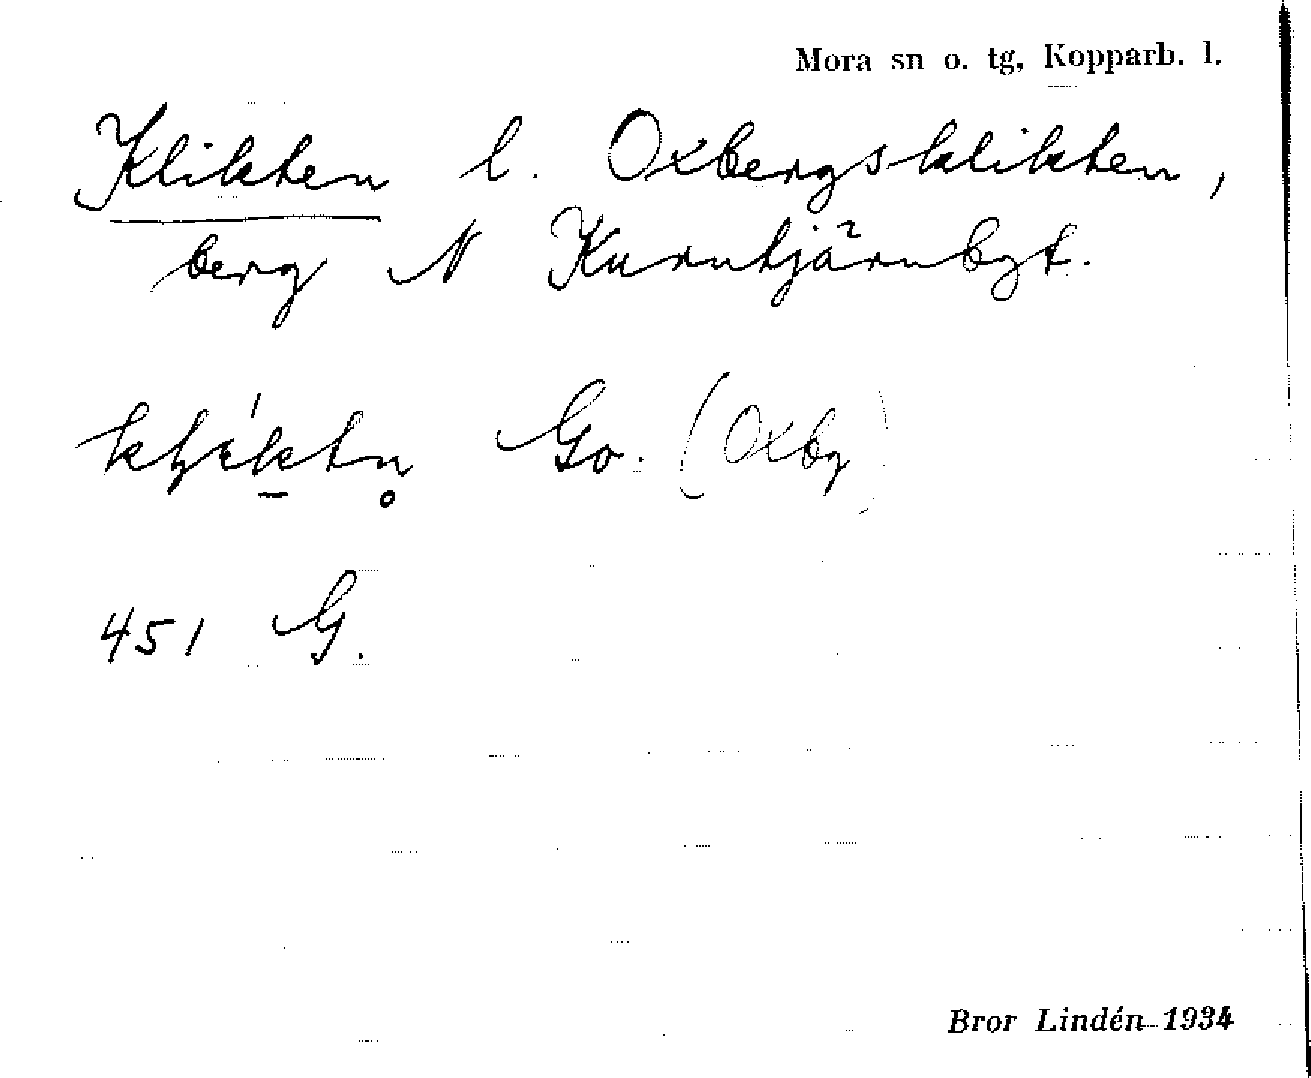 Mora sn o. tg, Kopparb. l.
Klikten l. Oxbergsklikten,
berg N Kurntjärnbgt.
Go. (Oxbg)
451 G.
Bror Lindén 1934